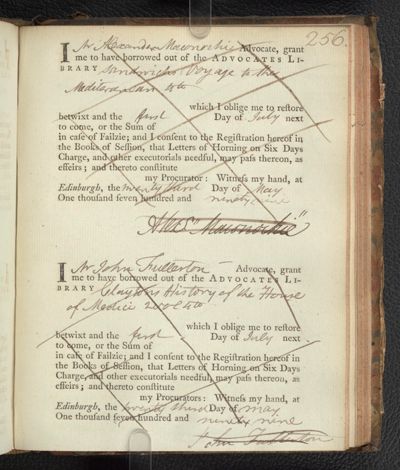 256.
I Mr Alexander Maconochie Advocate, grant
me to have borrowed out of the ADVOCATES LI-
BRARY Sandwich's Voyage to the
Mediteranean 4to
which I oblige me to reſtore
betwixt and the first Day of July next
to come, or the Sum of
in caſe of Failzie; and I conſent to the Regiſtration hereof in
the Books of Seſſion, that Letters of Horning on Six Days
Charge, and other executorials needful, may paſs thereon, as
effeirs; and thereto conſtitute
my Procurator: Witneſs my hand, at
Edinburgh, the twenty third Day of May
One thouſand ſeven hundred and ninety nine
Alexr. Maconochie
I Mr John Fullerton Advocate, grant
me to have borrowed out of the ADVOCATES LI-
BRARY Claytons History of the House
of Medici 2 vol 4to
which I oblige me to reſtore
betwixt and the first Day of July next
to come, or the Sum of
in caſe of Failzie; and I conſent to the Regiſtration hereof in
the Books of Seſſion, that Letters of Horning on Six Days
Charge, and other executorials needful, may paſs thereon, as
effeirs; and thereto conſtitute
my Procurators: Witneſs my hand, at
Edinburgh, the twenty third Day of may
One thouſand ſeven hundred and ninety nine
John Fullerton